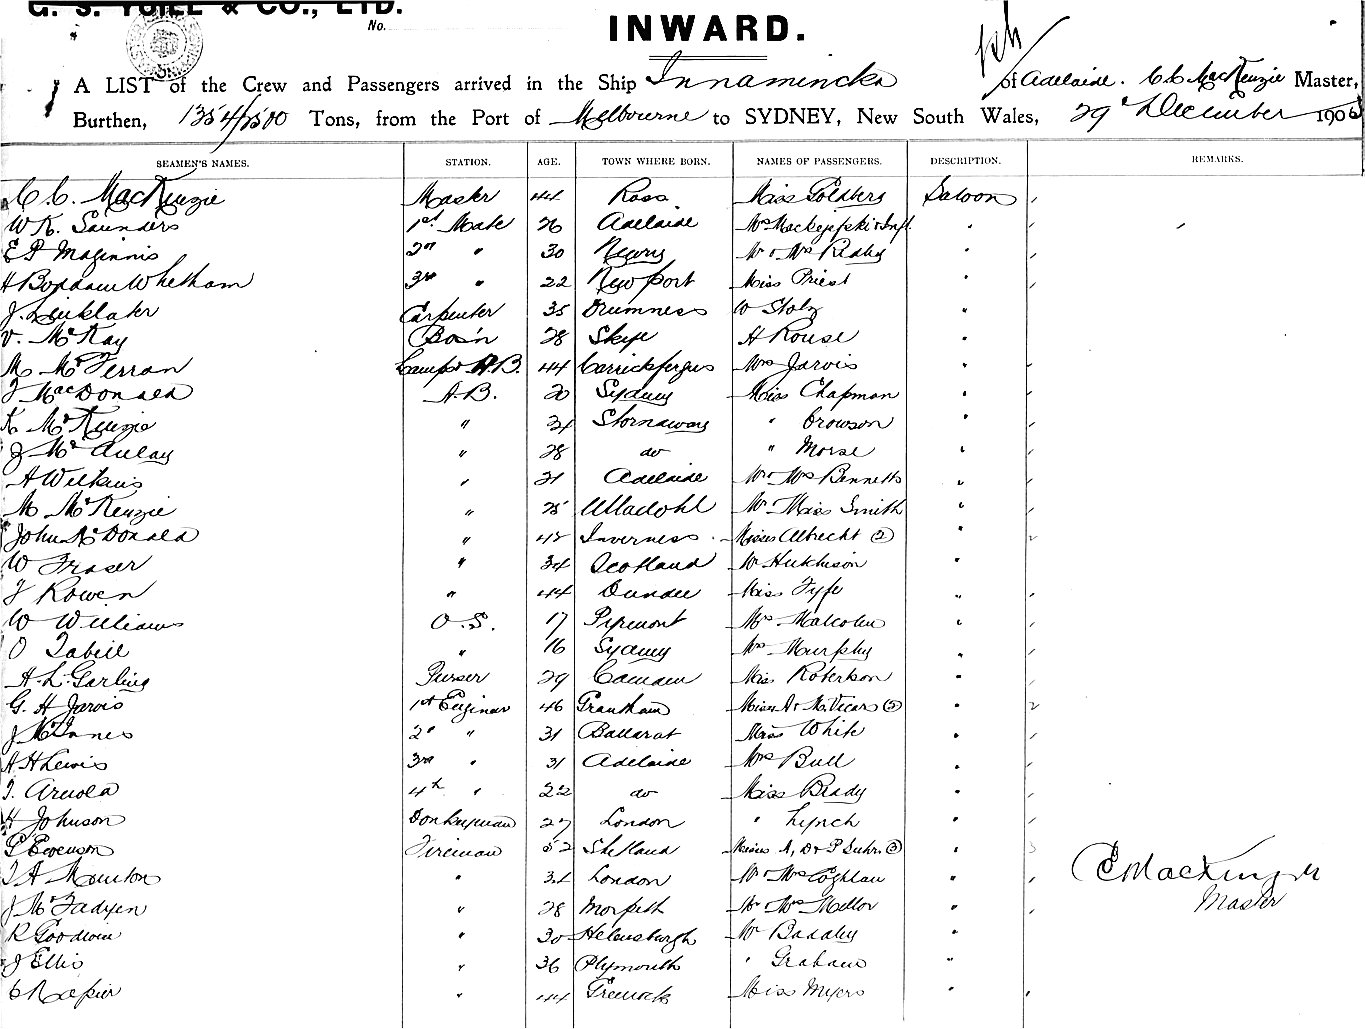 G. S. YUILL & CO., LTD.
No.
INWARD.
A LIST of the Crew and Passengers arrived in the Ship Innamincka of Adelaide. C C MacKenzie Master,
Burthen, 1354/2500 Tons, from the Port of Melbourne to SYDNEY, New South Wales, 29 December 190
SEAMEN'S NAMES. STATION. AGE. TOWN WHERE BORN. NAMES OF PASSENGERS. DESCRIPTION. REMARKS.
C C. MacKenzie Master 44 Ross Miss Goldberg Saloon
W K. Saunders 1st Mate 26 Adelaide Mrs & Inft.
E P Maginnis 2nd " 30 Newry Mr & Mrs
H Boddam Whetham 3rd " 22 Newport Miss Priest "
J. Linklater Carpenter 35 Drumness W Stolz "
V. McKay Bos'n 28 Skye H Rouse "
M McFerran Lamps & A.B. 44 Carrickfergus Mrs Jarvis "
J MacDonald A.B. 20 Sydney Miss Chapman "
K McKenzie " Stornaway " Crowson "
J McAulay " 28 do " Morse "
A Wilkins " 21 Adelaide Mr & Mrs Bennetts "
M McKenzie " 25 Ulladohl Mr & Miss Smith "
John McDonald " 42 Inverness Misses Albrecht (2) "
W Fraser " 34 Scotland Mr Hutchison "
J Rowen " 44 Dundee Miss Fyfe "
W Williams O.S. 17 Pyrmont Mrs Malcolm "
O Tabill " 16 Sydney Mrs Murphy "
H. L. Garling Purser 29 Camden Miss Robertson "
G. H Jarvis 1st Enginer 46 Grantham Misses A & M. Vicars (2) "
J McInnes 2nd " 31 Ballarat Miss White "
A H Lewis 3rd " 31 Adelaide Mrs Bull "
J. Arnold 4th " 22 do Miss Brady "
H Johnson Donkeyman 27 London " Lynch "
P Evenson Fireman 52 Shetland Misses A, D & P (3) "
J A Moulton " London Mr & Mrs Coghlan "
C MacKenzie
J McFadyen " 28 Morpeth Mr & Mrs Mellor "
Master
R Goodwin " 30 Helensburgh Mr "
J Ellis " 36 Plymouth " Graham "
C Napier " 44 Greenock Miss Myers "